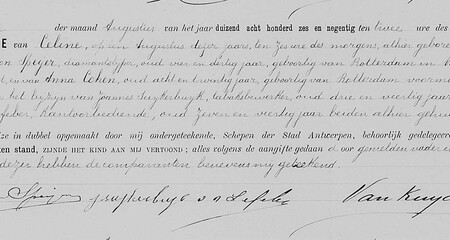 der maand Augustus van het jaar duizend acht honderd zes en negentig ten twee ure des
E van Celine, op een Augustus dezer jaars, ten zes ure des morgens, alhier gebore
on Speyer, diamantslyper, oud vier en dertig jaar, geboortig van Rotterdam in
en van Anna Cohen, oud acht en twintig jaar, geboortig van Rotterdam voorme
het byzyn van Joannes Suykerbuyk, tabaksbewerker, oud drie en veertig jaar
feber, kantoorbediende, oud zeven en veertig jaar beiden alhier gehui
ze in dubbel opgemaakt door mij ondergeteekende, Schepen der Stad Antwerpen, behoorlijk gedelegeer
ten stand, ZIJNDE HET KIND AAN MIJ VERTOOND; alles volgens de aangifte gedaan door gemelden vader en
dezer hebben de comparanten benevens my geteekend.
Speyer J Suykerbuyk Lefeber Van Kuyc